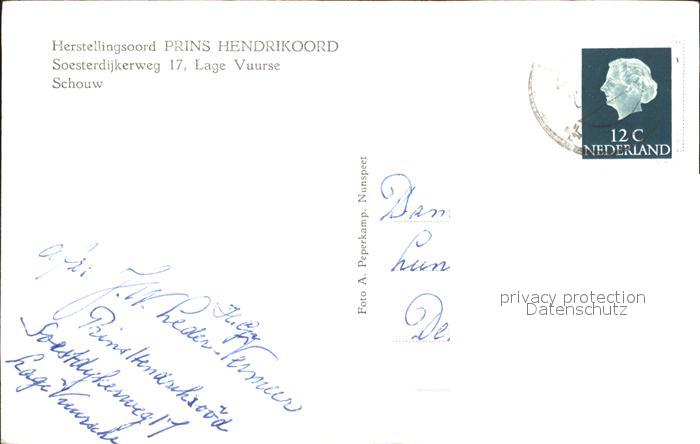 Herstellingsoord PRINS HENDRIKOORD
Soesterdijkerweg 17, Lage Vuurse
Schouw
12 C
NEDERLAND
Foto A. Peperkamp, Nunspeet
Dam
Lun
De
privacy protection
Datenschutz
J. W.
Vermeer
Prins Hendriksoord
Soestdijkerweg 17
Lage Vuursche